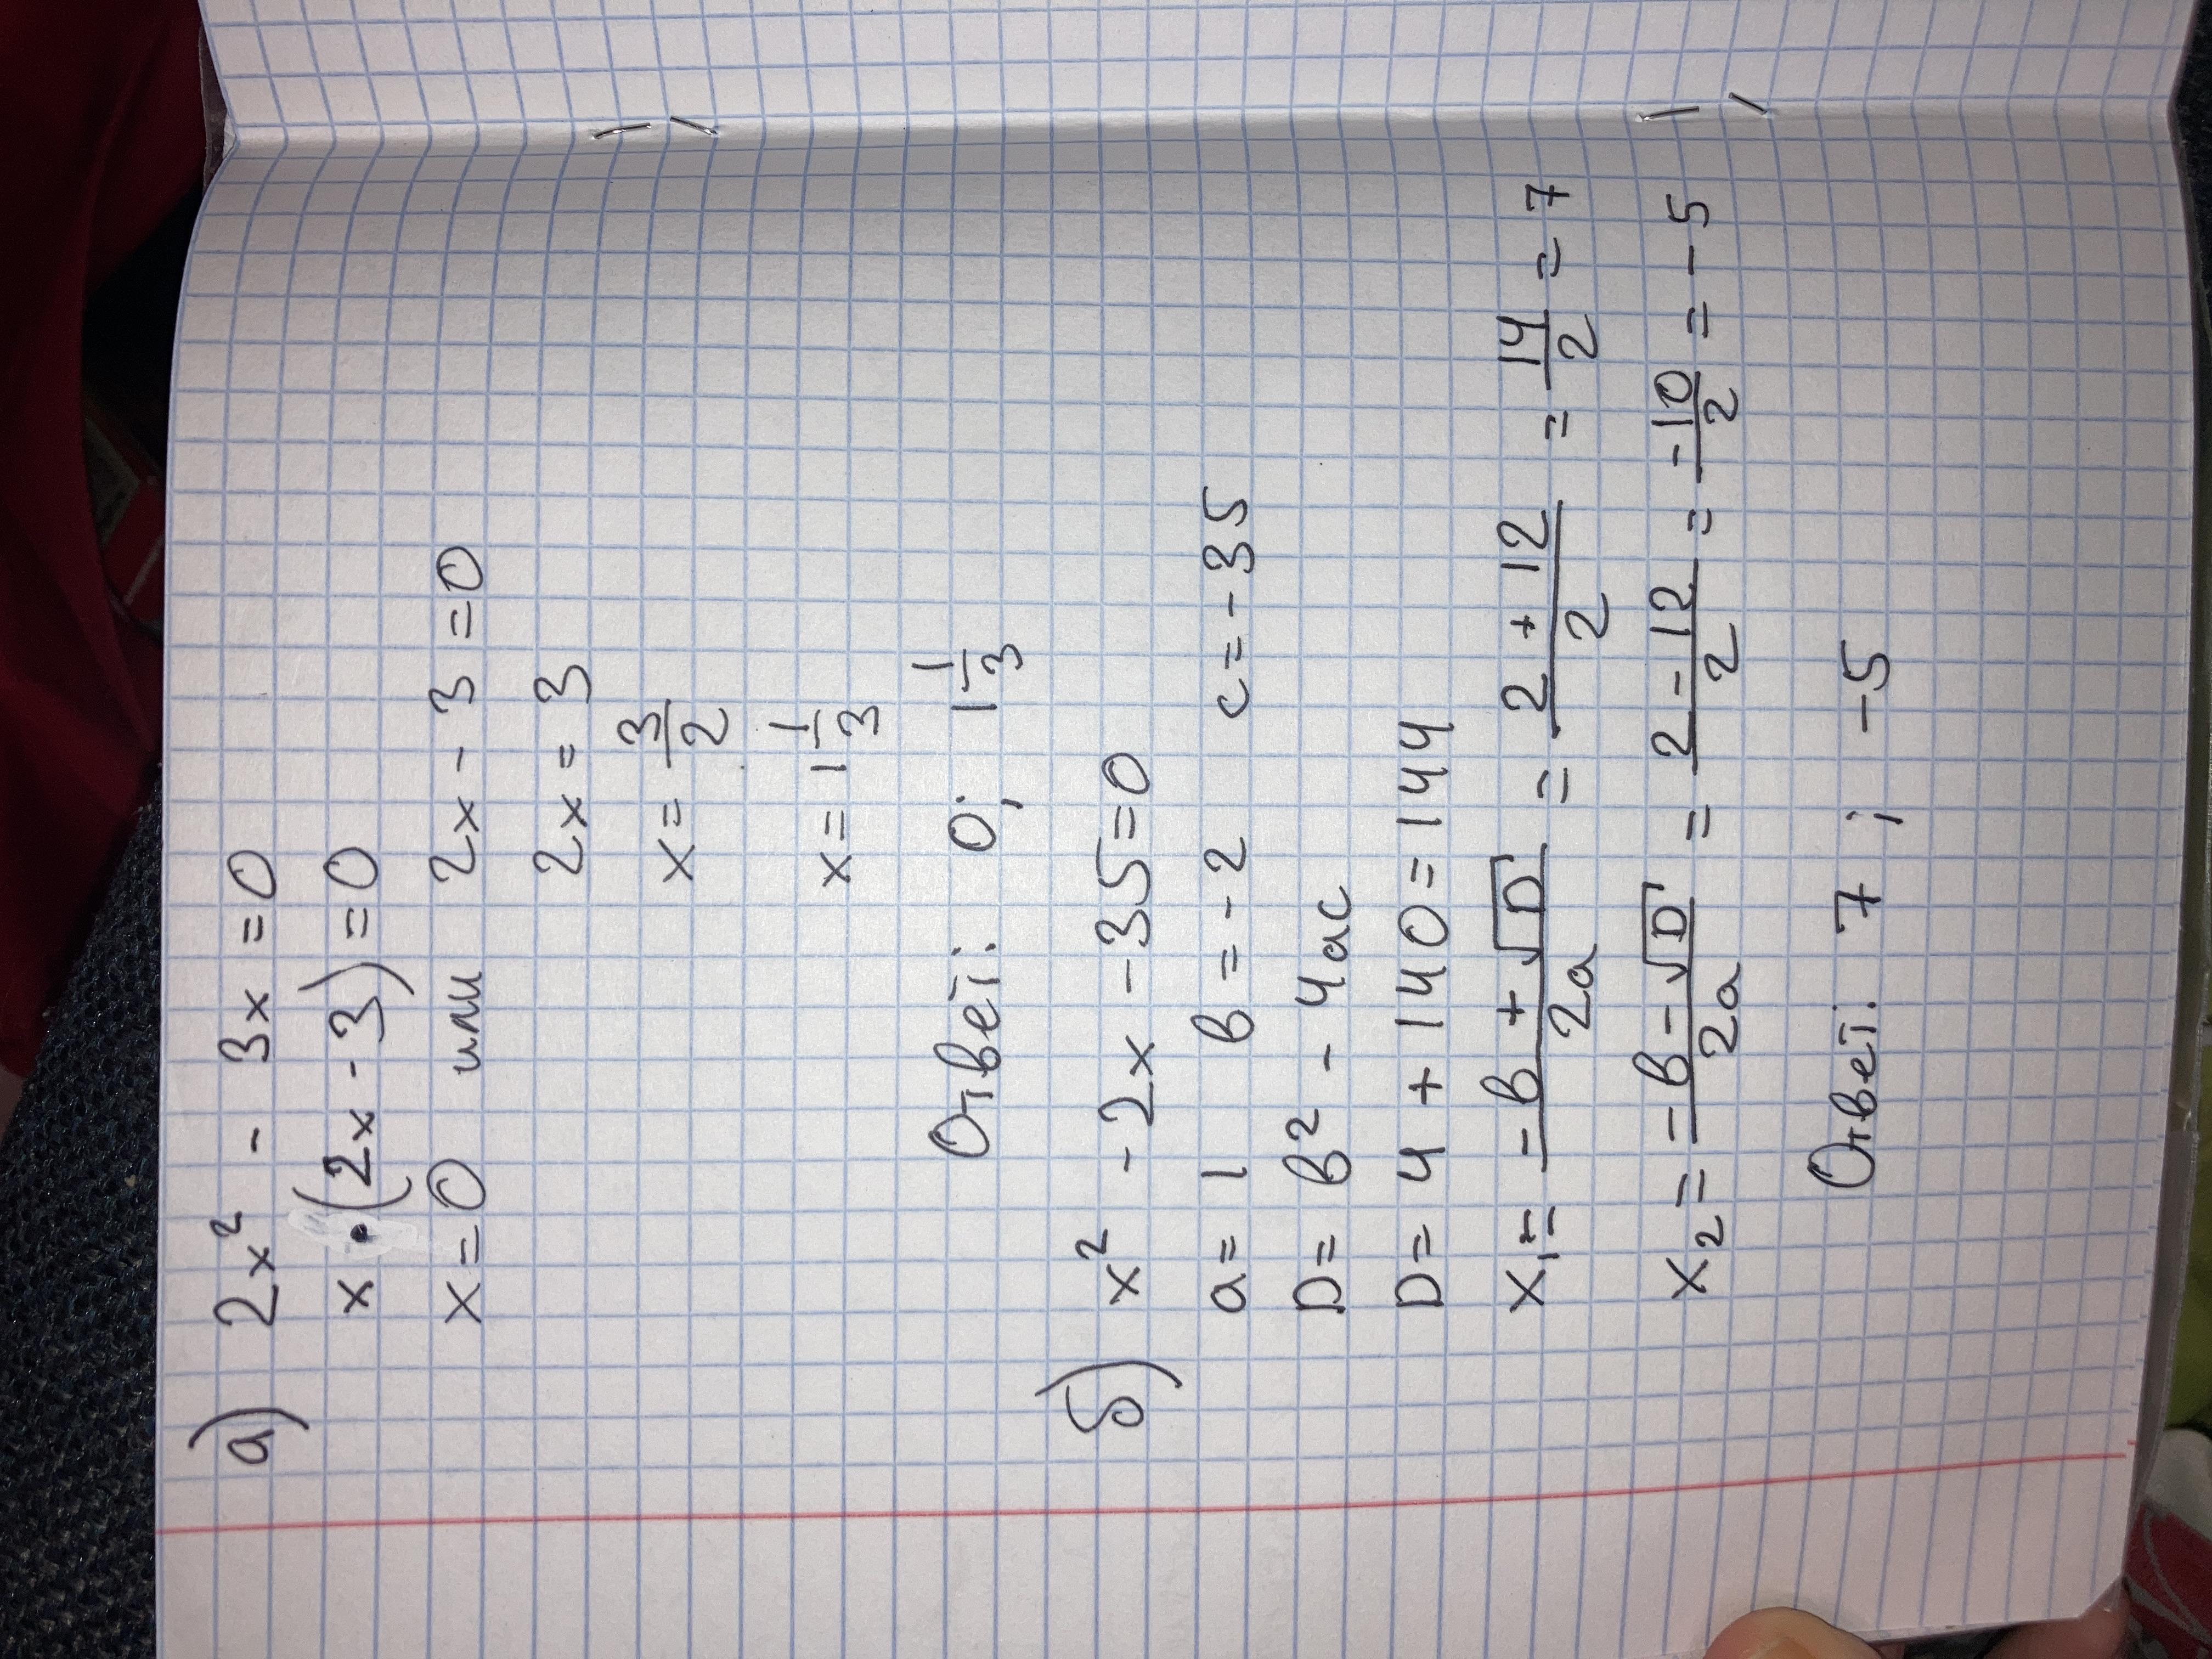 а) 2x² - 3x = 0
x • (2x - 3) = 0
x = 0 или 2x - 3 = 0
2x = 3
x = 3/2
x = 1 1/3
Ответ: 0; 1 1/3
б) x² - 2x - 35 = 0
a = 1 в = -2 c = -35
D = в² - 4ac
D = 4 + 140 = 144
x₁ = (-в + √D)/2a = (2 + 12)/2 = 14/2 = 7
x₂ = (-в - √D)/2a = (2 - 12)/2 = -10/2 = -5
Ответ: 7 ; -5